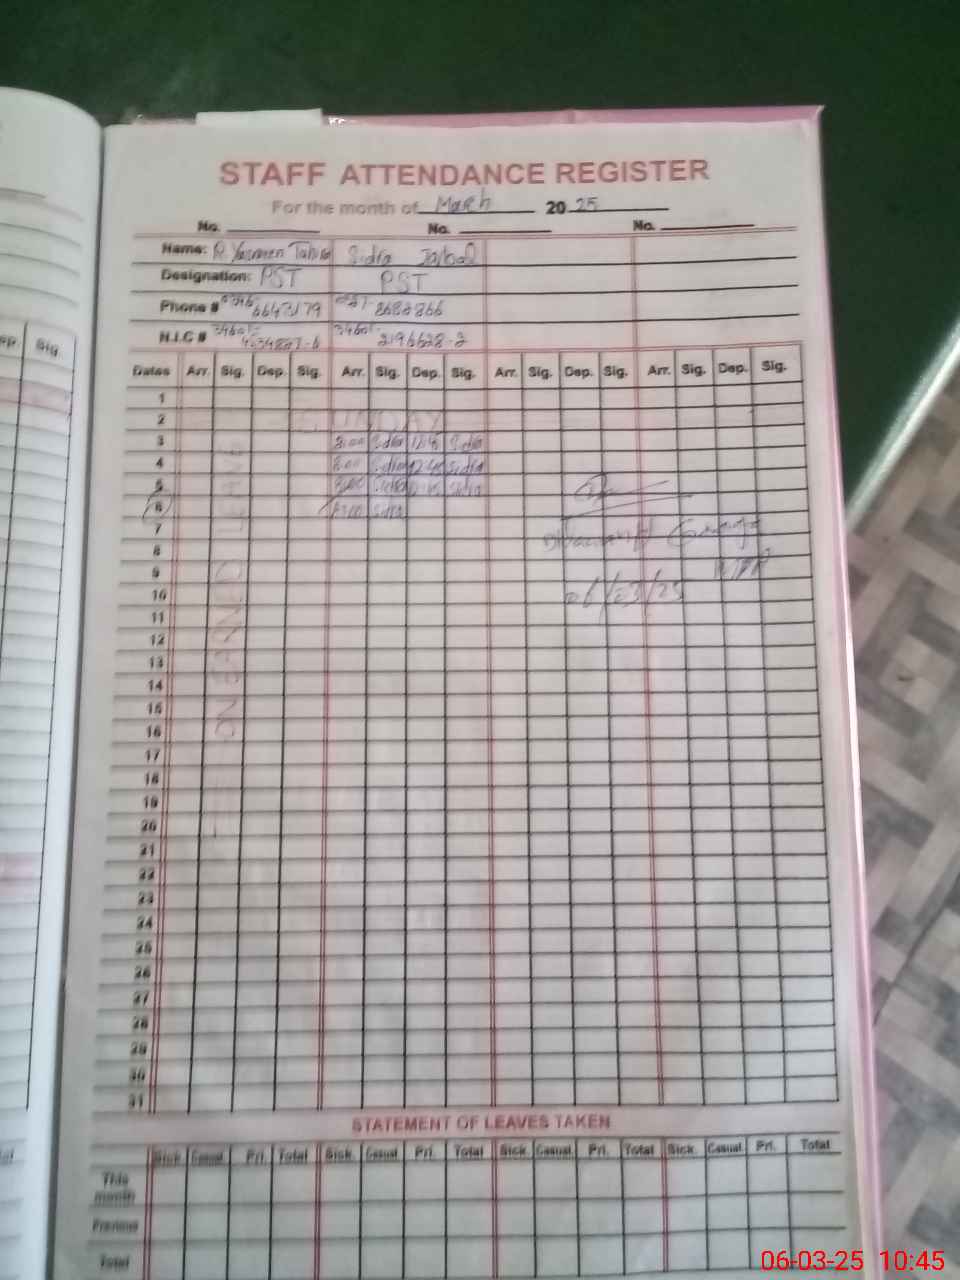 STAFF ATTENDANCE REGISTER
For the month of March 2025
No. No. No.
Name: R. Yasmeen Tahira Sidra
Designation: PST PST
Phone # 6643179 8682866
N.I.C # 34601- 34601- 2196628-2
Dates Arr. Sig. Dep. Sig. Arr. Sig. Dep. Sig. Arr. Sig. Dep. Sig. Arr. Sig. Dep. Sig.
1
2 SUNDAY
3 8:00 Sidra 12:45 Sidra
4 8:00 Sidra 12:45 Sidra
5 8:00 Sidra 12:45 Sidra
6 8:00 Sidra
7
8
9
10
11
12
13
14
15
16
17
18
19
20
21
22
23
24
25
26
27
28
29
30
31
ON EARNED LEAVE
06/03/25
STATEMENT OF LEAVES TAKEN
Sick. Casual. Pri. Total Sick. Casual. Pri. Total Sick. Casual. Pri. Total Sick. Casual. Pri. Total
This month
Previous
Total
Sig.
06-03-25 10:45